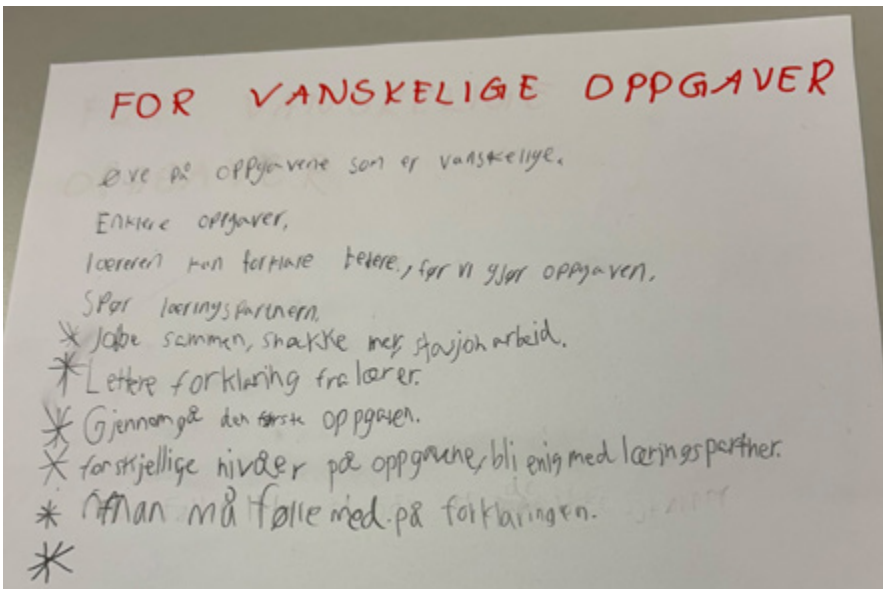 FOR VANSKELIGE OPPGAVER
Øve på oppgavene som er vanskelige.
Enklere oppgaver,
læreren kan forklare bedere, før vi gjør oppgaven.
Spør læringspartnern.
* Jobbe sammen, snakke mer, stasjonarbeid.
* Lettere forklaring fra lærer.
* Gjennomgå den første oppgaven.
* forskjellige nivåer på oppgavene, bli enig med læringspartner.
* Man må følle med på forklaringen.
*